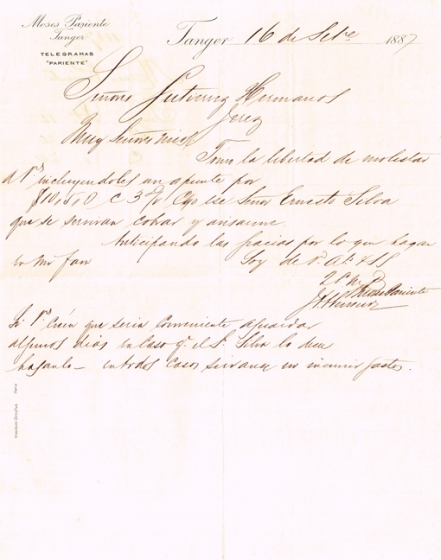 Moses Pariente
Tanger
TELEGRAMAS
"PARIENTE"
Tanger 16 de Setre 1887
Señores Gutierrez Hermanos
Jerez
Muy Señores mios
Tomo la libertad de molestar
á Vs incluyendoles un apunte por
c Señor Ernesto Silva
que se serviran cobrar y avisarme
Anticipando las gracias por lo que hagan
en mi favor Soy de
Pariente
Si Vs creen que seria conveniente aguardar
algunos dias en caso q. el Sr Silva lo desea
haganlo - en todos casos sirvanse no incurrir gastos.